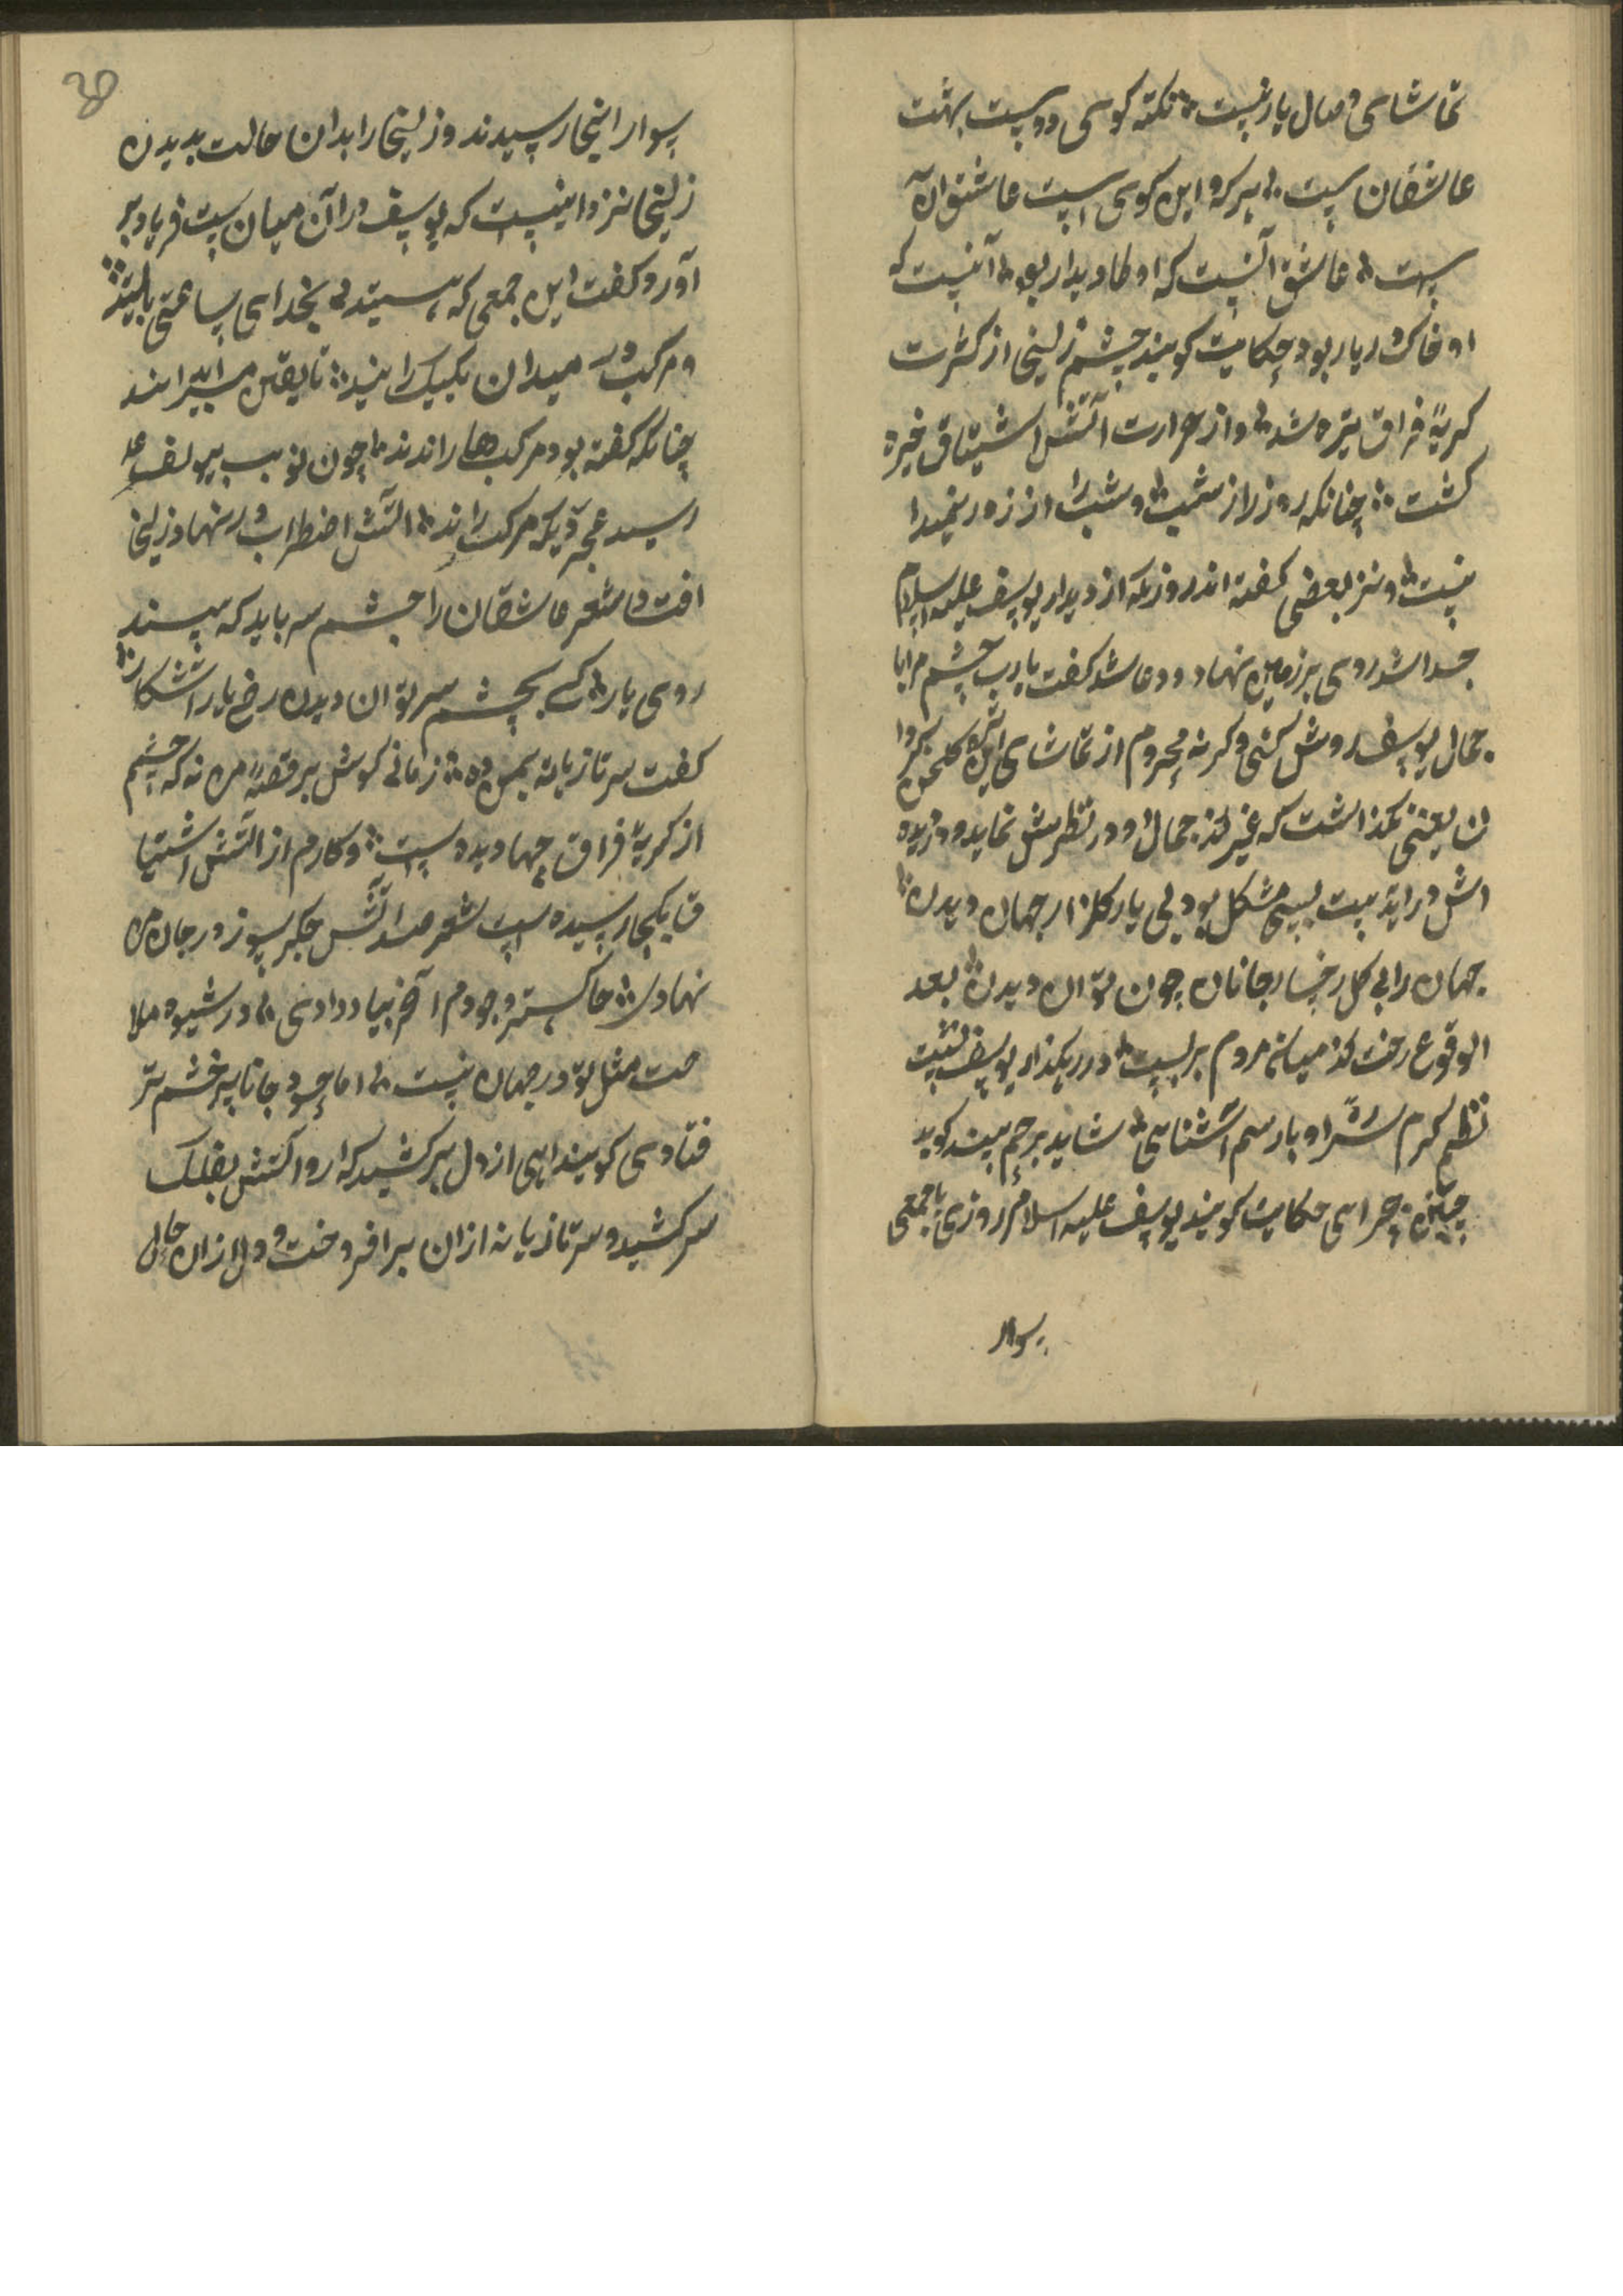 تماشای وصال یار نیست نکته کوی دوست بهشت
عاشقان ست هر که و این کوی است عاشق آن
ست عاشق آنست که او طا دیدار بود آنیست که
او خاک در یار بود حکایت کویند چشم زلیخا از کثرت
کریهٔ فراق تیره شد و از حرارت آتش اشتیاق خیره
کشت چنانکه روز را از شب و شب را از روز نمیدا
نست و نیز بعضی کفته اند روزیکه از دیدار یوسف علیه السلام
جدا شد روی بر زمین نهاد و دعا شد کفت یا رب چشم مرا با
جمال یوسف روشن کنی و کر نه محروم از تماشای این کلخن
ن یعنی نکذاشت که غیر جمال او در نظرش نماید و در دیده
اش در آید بیت بسی مشکل بود بی یار کلزار جهان دیدن
جهان را بی کل رخسار جانان چون توان دیدن بعد
الوقوع رخت از میانه مردم بر بست در رهکذار یوسف نشست
نظم کرم سر راه او با رسم آشنایی شاید برحم بیند کوید
چنین چرایی حکایت کویند یوسف علیه السلام روزی با جمعی
سوار
سوار اینجا رسیدند و زلیخا را بدان حالت بدیدن
زلیخا نیز دانست که یوسف در آن میان ست فریاد بر
آورد و کفت این جمعی که هستید بخدای ساعتی بایستید
و مرکب در میدان یکیک رانید تا یقین
چنانکه کفته بود مرکب ها راندند چون نوبت بیوسف
رسید مرکب راند آتش اضطراب در نهاد زلیخا
افتاد شعر عاشقان را چشم سر باید که بیند
روی یار کی بچشم سر توان دیدن رخ یار آشکار
کفت سر تازیانه بمن ده زمانی کوش بر قصهٔ من نه که چشم
از کریهٔ فراق چها دیده ست و کارم از آتش اشتیا
ق بکجا رسیده ست شعر صد آتش جکر سوز در جان من
نهادی خاکستر وجودم آخر بباد دادی در شیوه ملا
حت مثل تو در جهان نیست اما چو جانا بر خشم تر
فتادی کویند آهی از دل بر کشید که از و آتش بفلک
سر کشید و سر تازیانه از آن بر افروخت و دل از آن حال